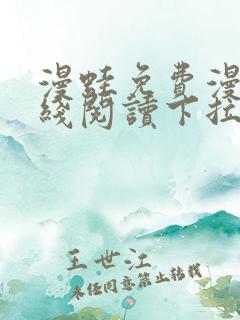 漫蛙免費漫
綫閱讀下拉
王世江
未经同意禁止转载